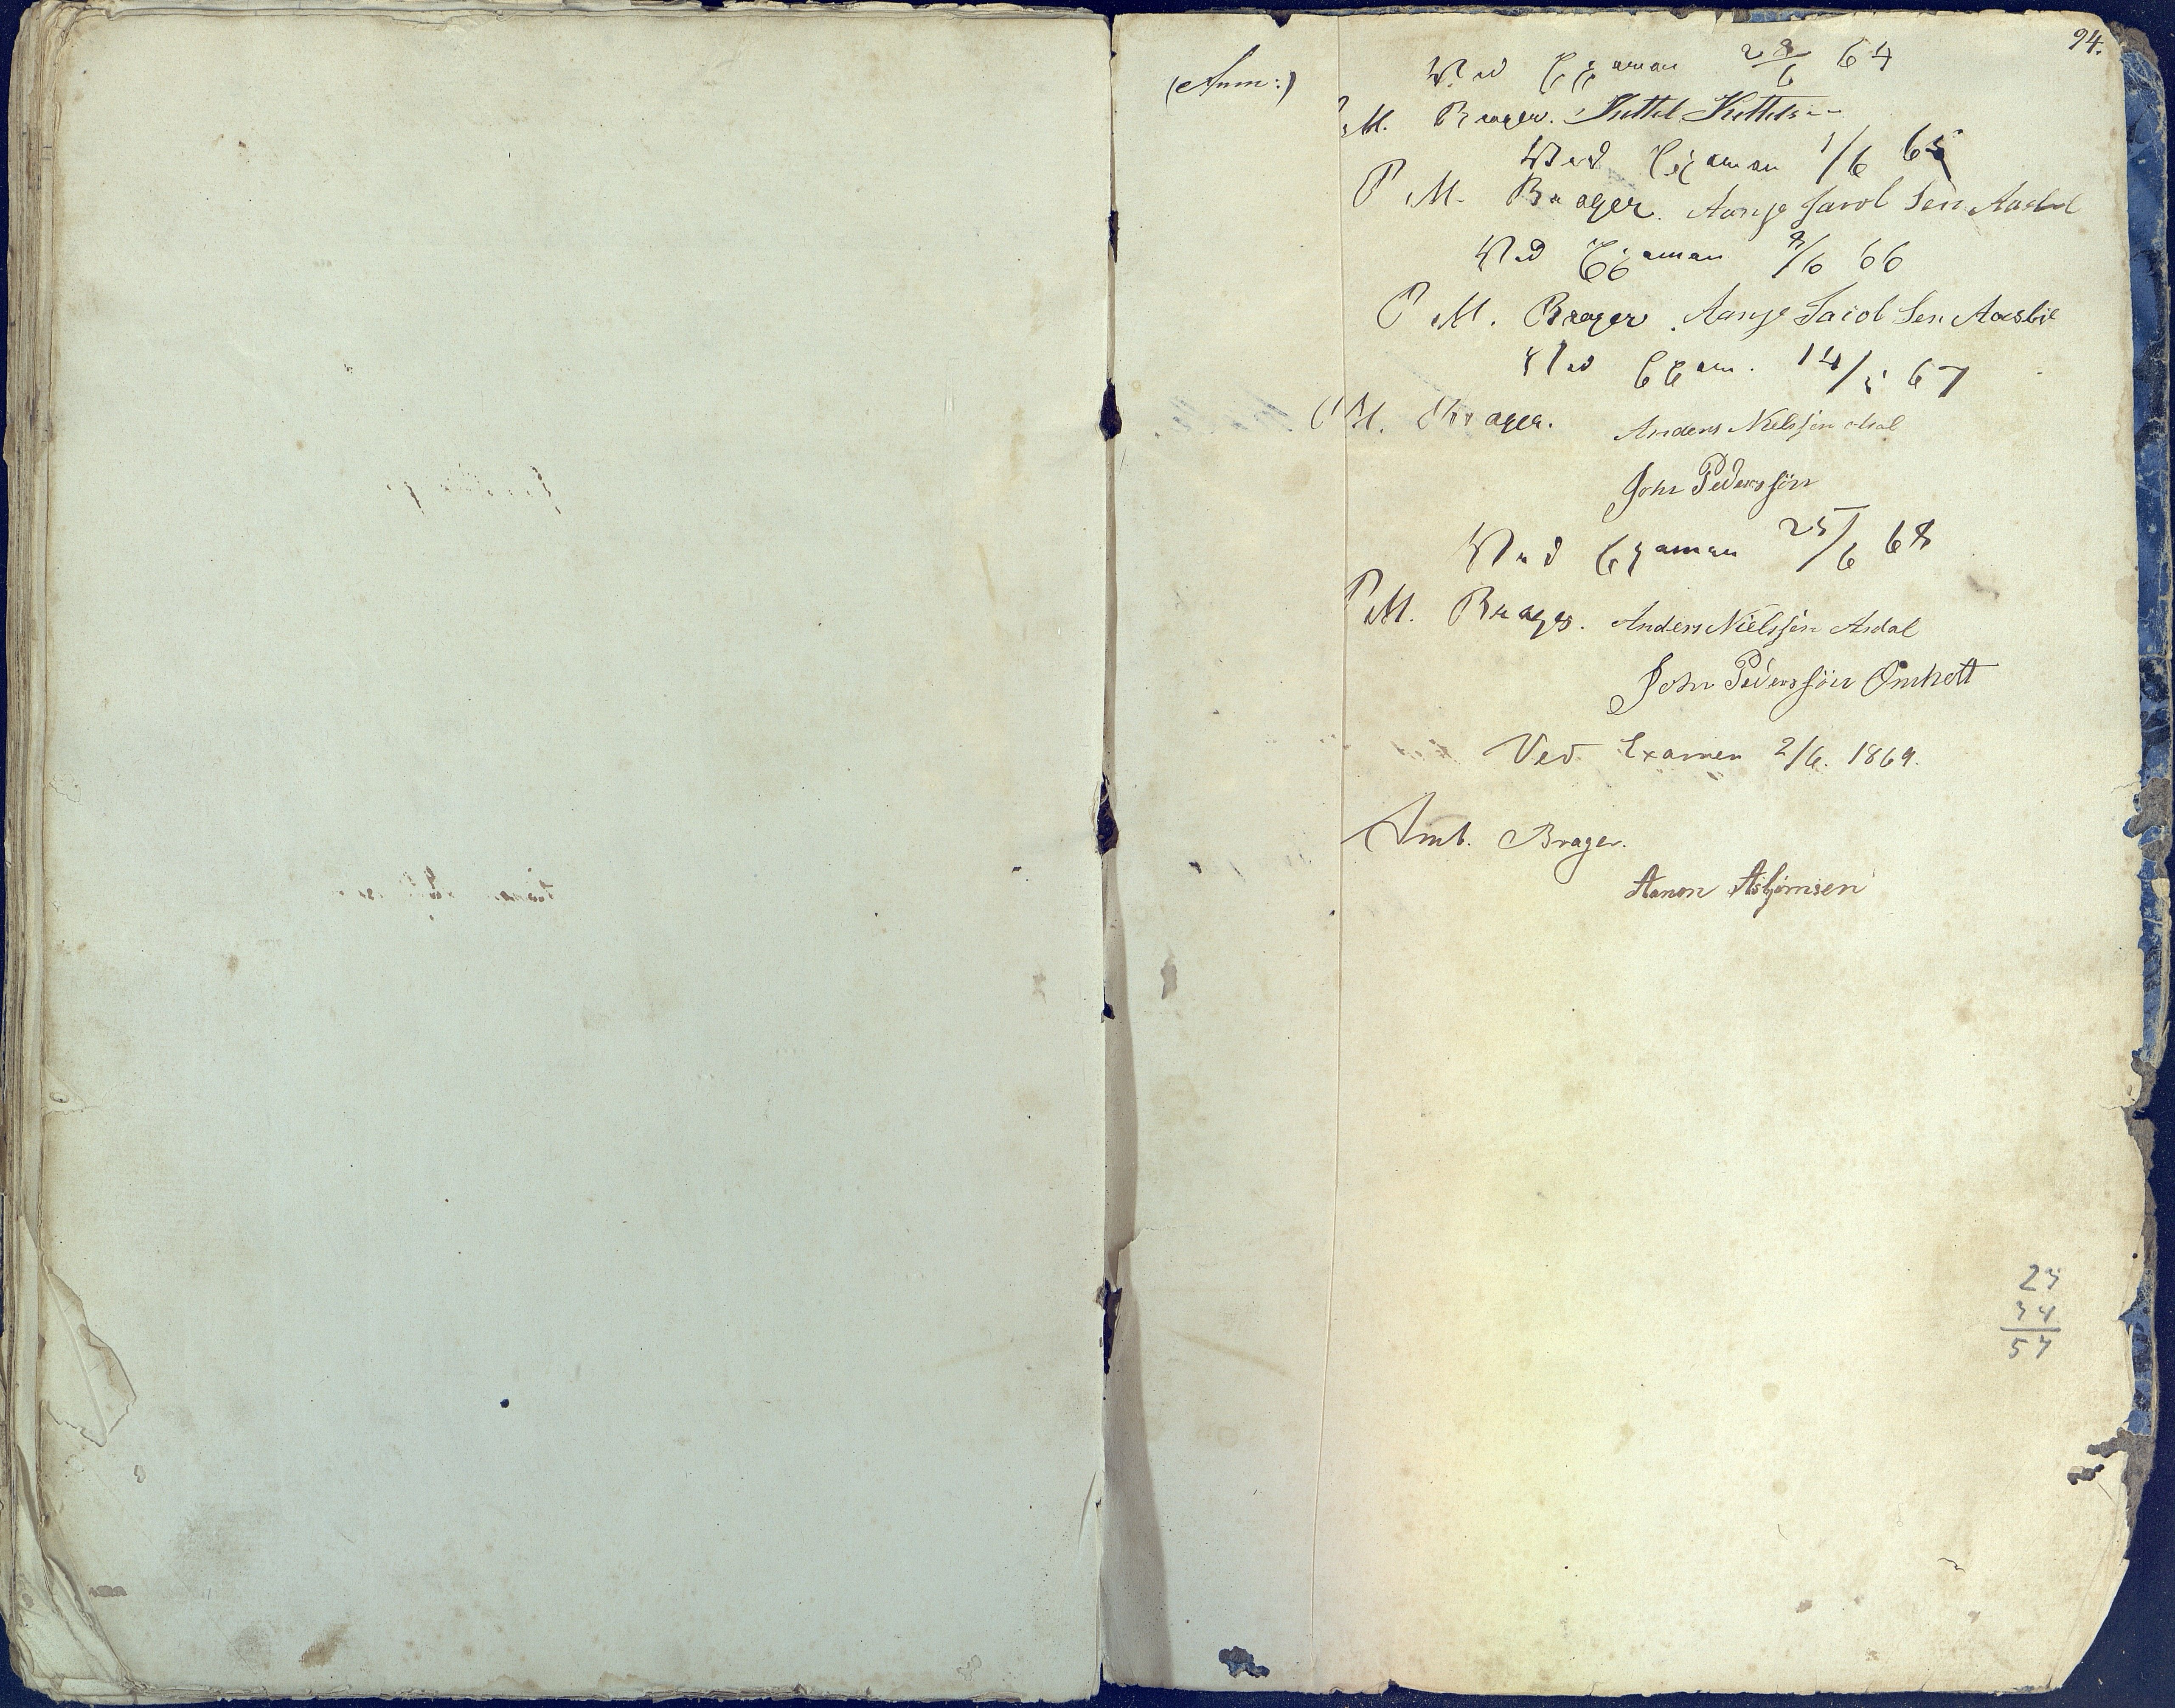 94.
(Anm:)
Ved Examen 28/6 64
P M. Brager. Kettel Kettels
Ved Examen 1/6 65
P M. Brager. Aanje Jacob Sen Aasbil
Ved Examen 9/6 66
P M. Brager. Aanje Jacob Sen Aasbil
Ved Exam. 14/5 67
P M. Brager. Anders Nielssen
John Pederssön
Ved Examen 25/6 68
P M. Brager. Anders Nielssen Asdal
John Pederssön Omholt
Ved Examen 2/6. 1869.
Amb. Brager.
Aanon Asbjörnsen
23
34
57